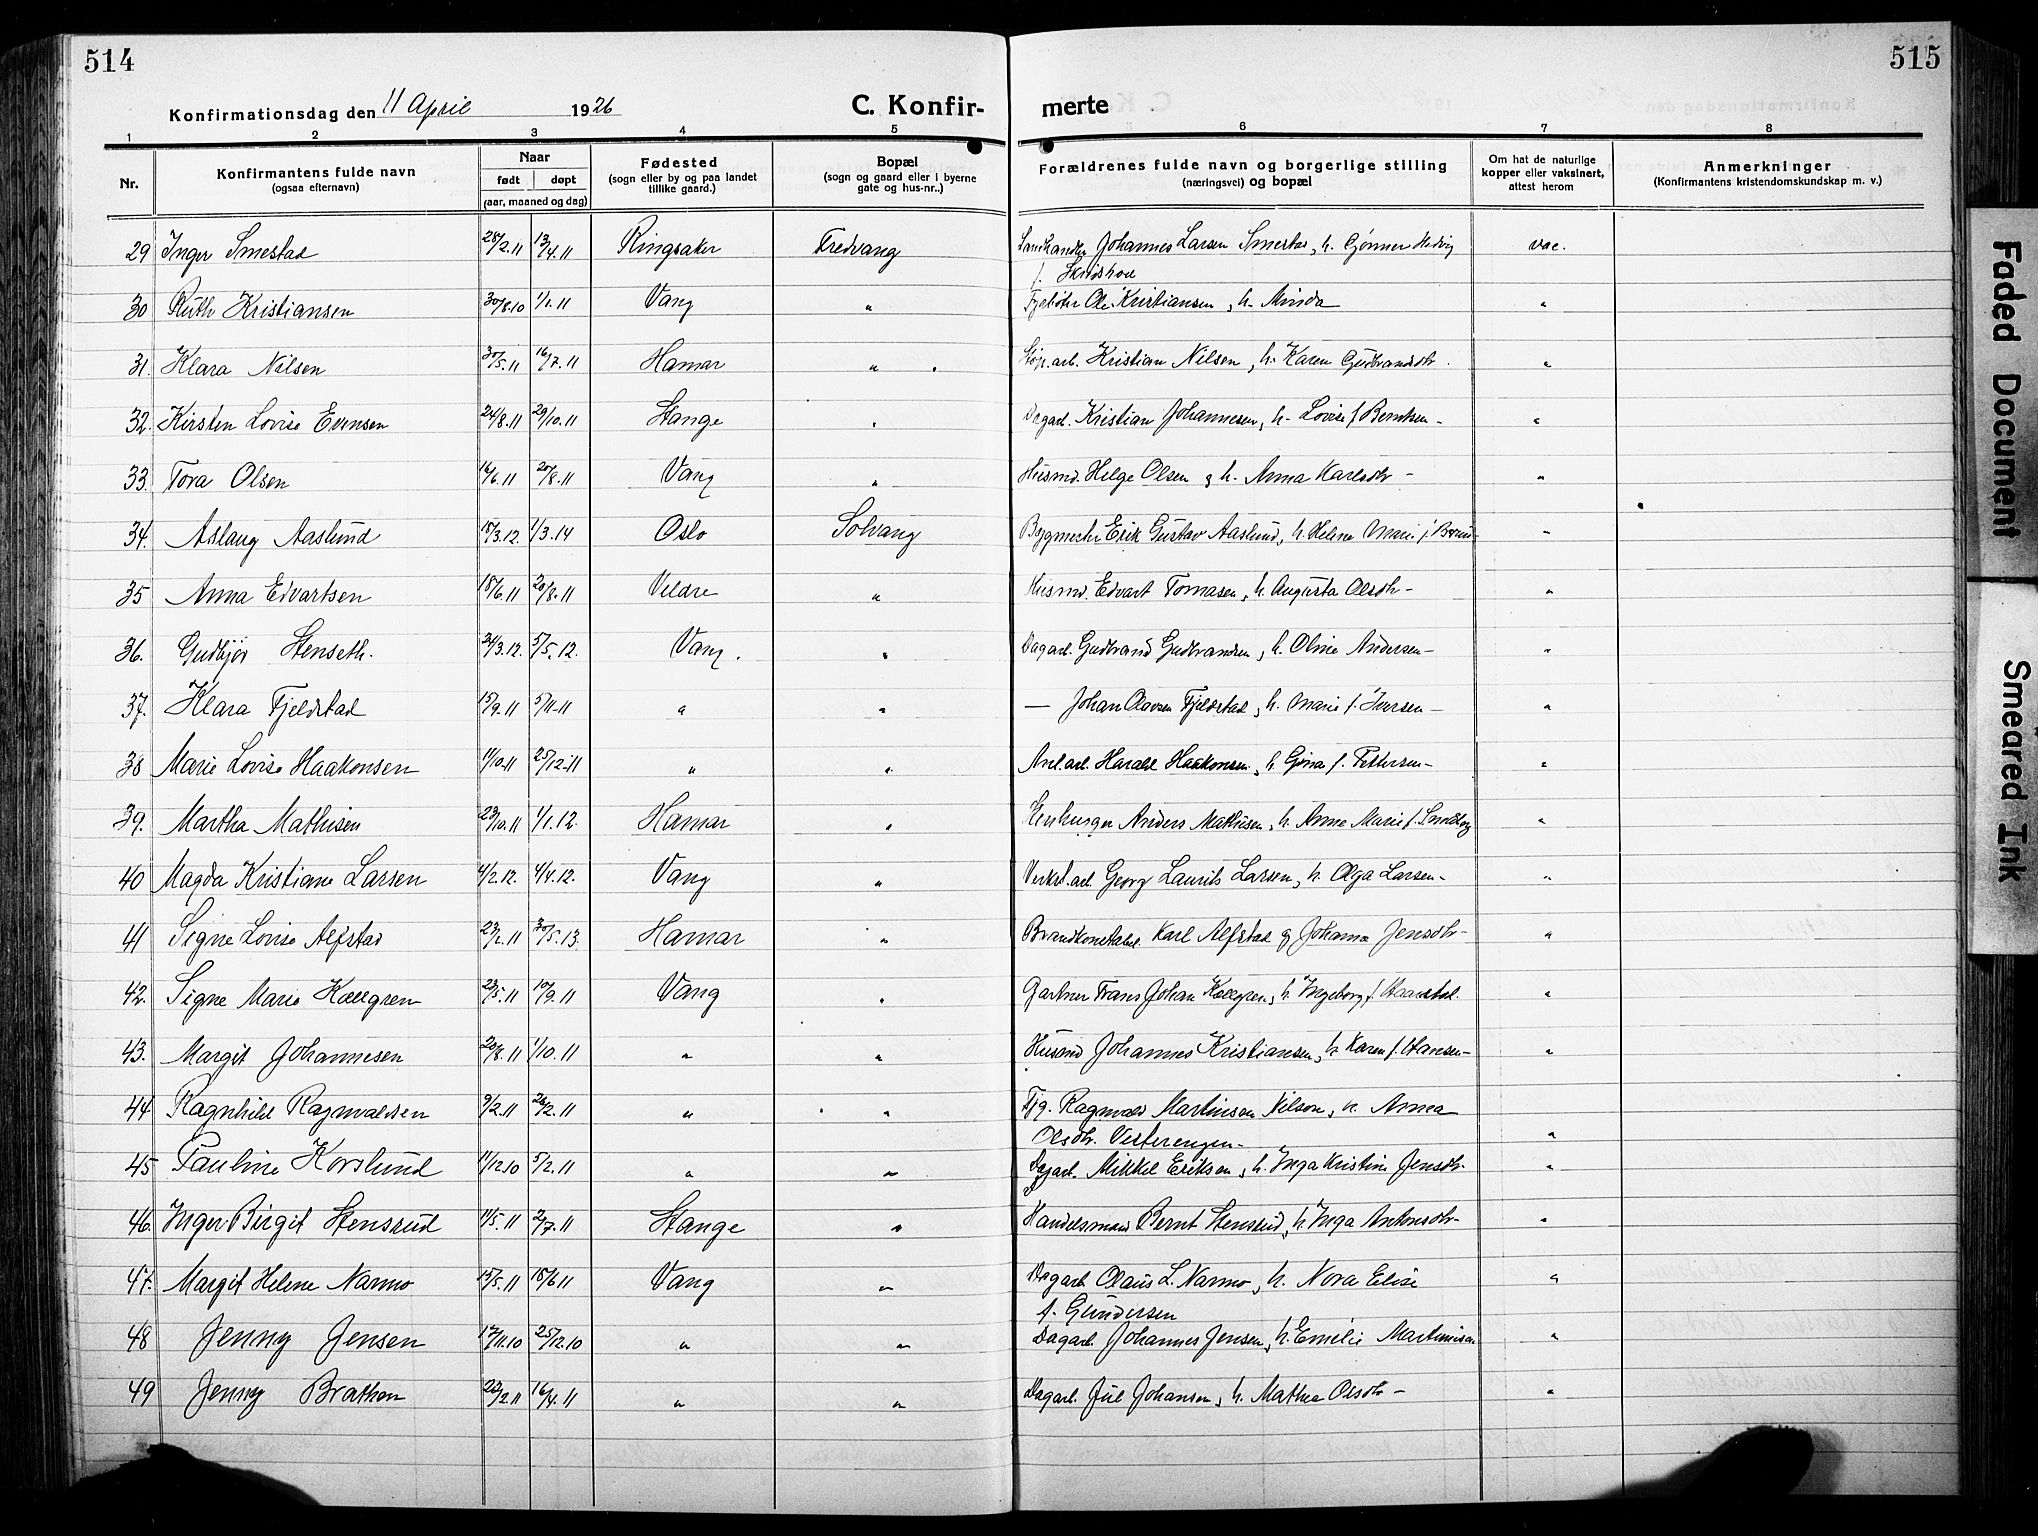 514
515
Konfirmationsdag den 11 April 1926
C. Konfir- merte
1 2 3 4 5 6 7 8
Nr.
Konfirmantens fulde navn
(ogsaa efternavn)
Naar
født døpt
(aar, maaned og dag)
Fødested
(sogn eller by og paa landet
tillike gaard.)
Bopæl
(sogn og gaard eller i byerne
gate og hus-nr..)
Forældrenes fulde navn og borgerlige stilling
(næringsvei) og bopæl
Om hat de naturlige
kopper eller vaksinert,
attest herom
Anmerkninger
(Konfirmantens kristendomskundskap m. v.)
29 Inger Smestad 28/2.11 13/4.11 Ringsaker Fredvang Johannes Larsen Smestad, h. Gjønner Hedvig vac.
f. Skridshol
30 Ruth Kristiansen 30/8.10 1/1.11 Vang " Ole Kristiansen, h. Minda "
31. Klara Nilsen 30/5.11 16/7.11 Hamar " Kristian Nilsen, h. Karen Gudbrandsdtr. "
32. Kirsten Lovise Evensen 24/8.11 29/10.11 Stange " Dagarb. Kristian Johannesen, h. Lovise f. Berntsen - "
33. Tora Olsen 16/6.11 20/8.11 Vang " Husmd. Helge Olsen og h. Anna Karlsdtr - "
34. Aslaug Aaslund 15/3.12. 1/3.14 Oslo Solvang Bygmester Erik Gustav Aaslund, h. Helene Marie f. "
35 Anna Edvartsen 18/6.11 20/8.11 Veldre " Husmd. Edvart Tomasen, h. Augusta Olsdtr - "
36. Gudbjør Stenseth. 24/3.12. 5/5.12. Vang. " Dagarb. Gudbrand Gudbrandsen, h. Oline Andersen - "
37. Klara Fjeldstad 15/9.11 5/11.11 " " — Johan Olavsen Fjeldstad, h. Marie f. Iversen - "
38 Marie Lovise Haakonsen 11/10.11 25/12.11 " " Anl.arb. Harald Haakonsen, h. Gina f. Pettersen - "
39. Martha Mathisen 23/10.11 1/1.12. Hamar " Stenhugger Anders Mathisen, h. Anne Marie f. "
40 Magda Kristiane Larsen 4/2.12. 4/4.12. Vang " Verkst.arb. Georg Laurits Larsen, h. Olga Larsen - "
41 Signe Lovise Alfstad 23/2.11 30/5.13. Hamar " Brandkonstabel Karl Alfstad og Johanna Jensdtr - "
42. Signe Marie Kællgren 23/5.11 10/9.11 Vang " Gartner Frans Johan Kællgren, h. Ingeborg f. "
43. Margit Johannesen 20/8.11 1/10.11 " " Husmd Johannes Kristiansen, h. Karen f. Hansen - "
44 Ragnhild Ragnvaldsen 9/2.11 26/2.11 " " Fjg. Ragnvald Martinsen Nilsen, h. Anna
Olsdtr. Vesterengen - "
45 Pauline Korslund 11/12.10 5/2.11 " " Dagarb. Mikkel Eriksen, h. Inga Kristine Jensdtr. "
46. Inger Birgit Stensrud 14/5.11 2/7.11 Stange " Handelsmand Bernt Stensrud, h. Inga Antonsdtr - "
47. Margit Helene Narmo 15/5.11 18/6 11 Vang " Dagarb. Olaus L. Narmo, h. Nora Elise "
f. Gundersen
48 Jenny Jensen 17/11.10 25/12.10 " " Dagarb. Johannes Jensen, h. Emilie Martinsen "
49 Jenny Brathen 22/2.11 16/4.11 " " Dagarb. Jul Johansen, h. Mathea Olsdtr - "
Faded Document
Smeared Ink